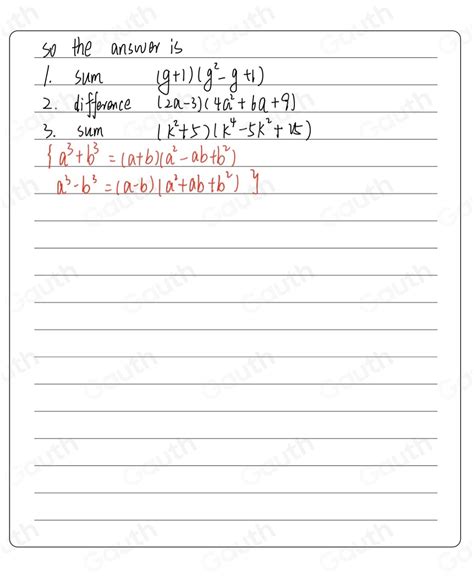 so the answer is
1. sum (g+1)(g²-g+1)
2. difference (2a-3)(4a²+6a+9)
3. sum (k²+5)(k⁴-5k²+25)
{ a³+b³ = (a+b)(a²-ab+b²)
a³-b³ = (a-b)(a²+ab+b²) }
Gauth